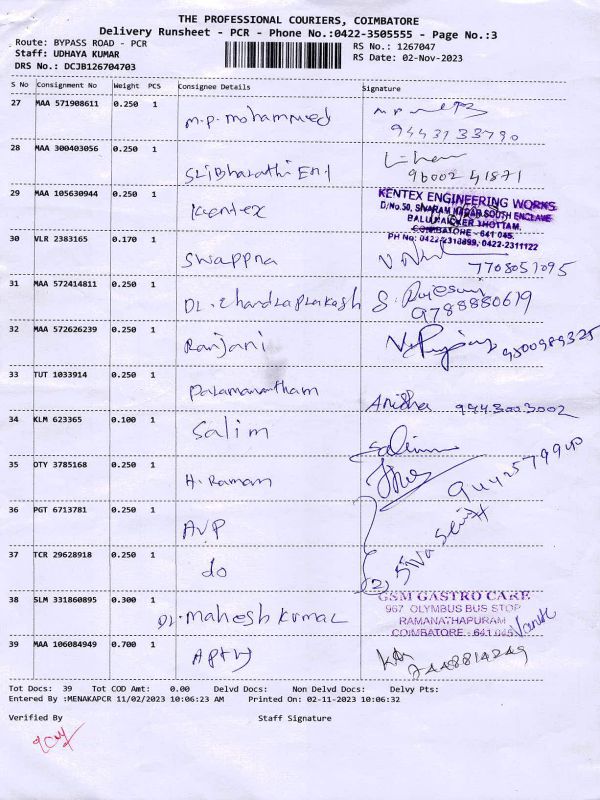 THE PROFESSIONAL COURIERS, COIMBATORE
Delivery Runsheet - PCR - Phone No.:0422-3505555 - Page No.:3
Route: BYPASS ROAD - PCR
Staff: UDHAYA KUMAR
DRS No.: DCJB126704703
RS No.: 1267047
RS Date: 02-Nov-2023
S No Consignment No Weight PCS Consignee Details Signature
27 MAA 571908611 0.250 1 M.P. Mohammed
9443133790
28 MAA 300403056 0.250 1 Sri Bharathi Ent
96002 41871
29 MAA 105630944 0.250 1 Kentex
KENTEX ENGINEERING WORKS
D/No.50, SIVARAM NAGAR SOUTH ENCLAVE
THOTTAM,
COIMBATORE - 641 045.
PH No: 0422-2318899, 0422-2311122
30 VLR 2383165 0.170 1 Swappna
7708051095
31 MAA 572414811 0.250 1 Dr. Chandraprakash
9788880619
32 MAA 572626239 0.250 1 Ranjani
9500989325
33 TUT 1033914 0.250 1 Paramanantham
Anisha 9443003002
34 KLM 623365 0.100 1 Salim
35 OTY 3785168 0.250 1 H. Raman
36 PGT 6713781 0.250 1 AVP
37 TCR 29628918 0.250 1 do
(2)
38 SLM 331860895 0.300 1 Dr. Mahesh Kumar
GSM GASTRO CARE
967 OLYMBUS BUS STOP
RAMANATHAPURAM
COIMBATORE - 641 045
39 MAA 106084949 0.700 1
Tot Docs: 39 Tot COD Amt: 0.00 Delvd Docs: Non Delvd Docs: Delvy Pts:
Entered By :MENAKAPCR 11/02/2023 10:06:23 AM Printed On: 02-11-2023 10:06:32
Verified By Staff Signature